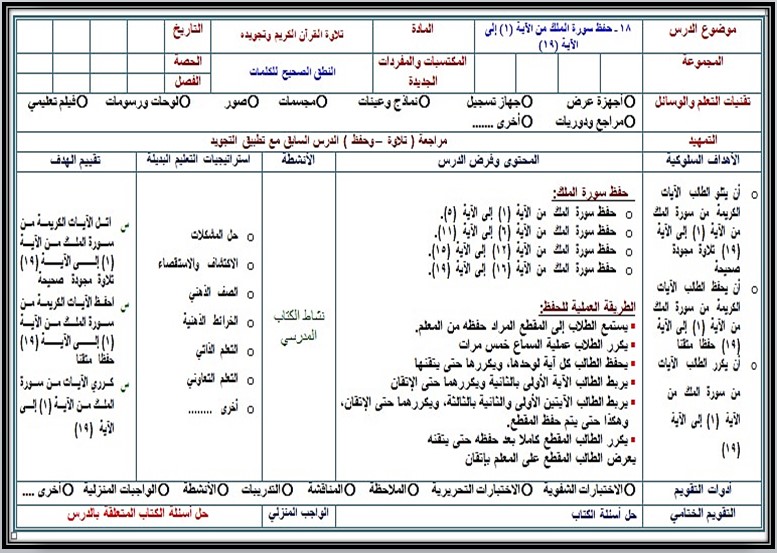 موضوع الدرس
١٨ ـ حفظ سورة الملك من الآية (١) إلى
الآية (١٩)
المادة
تلاوة القرآن الكريم وتجويده
التاريخ
المجموعة
المكتسبات والمفردات
الجديدة
النطق الصحيح للكلمات
الحصة
الفصل
تقنيات التعلم والوسائل
Oأجهزة عرض Oجهاز تسجيل Oنماذج وعينات Oمجسمات Oصور Oلوحات ورسومات Oفيلم تعليمي
Oمراجع ودوريات Oأخرى .......
التمهيد
مراجعة ( تلاوة –وحفظ ) الدرس السابق مع تطبيق التجويد
الأهداف السلوكية
المحتوى وفرض الدرس
الأنشطة
استراتيجيات التعليم البديلة
تقييم الهدف
o أن يتلو الطالب الآيات
الكريمة من سورة الملك
من الآية (١) إلى الآية
(١٩) تلاوة مجودة
صحيحة
o أن يحفظ الطالب الآيات
الكريمة من سورة الملك
من الآية (١) إلى الآية
(١٩) حفظا متقنا
o أن يكرر الطالب الآيات
من سورة الملك من
الآية (١) إلى الآية
(١٩)
حفظ سورة الملك:
o حفظ سورة الملك من الآية (١) إلى الآية (٥).
o حفظ سورة الملك من الآية (٦) إلى الآية (١١).
o حفظ سورة الملك من الآية (١٢) إلى الآية (١٥).
o حفظ سورة الملك من الآية (١٦) إلى الآية (١٩).
الطريقة العملية للحفظ:
▪ يستمع الطلاب إلى المقطع المراد حفظه من المعلم.
▪ يكرر الطلاب عملية السماع خمس مرات
▪ يحفظ الطالب كل آية لوحدها، ويكررها حتى يتقنها
▪ يربط الطالب الآية الأولى بالثانية ويكررهما حتى الإتقان
▪ يربط الطالب الآيتين الأولى والثانية بالثالثة، ويكررهما حتى الإتقان،
وهكذا حتى يتم حفظ المقطع.
▪ يكرر الطالب المقطع كاملا بعد حفظه حتى يتقنه
يعرض الطالب المقطع على المعلم بإتقان
نشاط الكتاب
المدرسي
o حل المشكلات
o الاكتشاف والاستقصاء
o الصف الذهني
o الخرائط الذهنية
o التعلم الذاتي
o التعلم التعاوني
o أخرى ........
س اتل الآيات الكريمة من
سورة الملك من الآية
(١) إلى الآية (١٩)
تلاوة مجودة صحيحة
س احفظ الآيات الكريمة من
سورة الملك من الآية
(١) إلى الآية (١٩)
حفظا متقنا
س كرري الآيات من سورة
الملك من الآية (١) إلى
الآية (١٩)
أدوات التقويم
Oالاختبارات الشفوية Oالاختبارات التحريرية Oالملاحظة Oالمناقشة Oالتدريبات Oالأنشطة Oالواجبات المنزلية Oأخرى ....
التقويم الختامي
حل أسئلة الكتاب
الواجب المنزلي
حل أسئلة الكتاب المتعلقة بالدرس